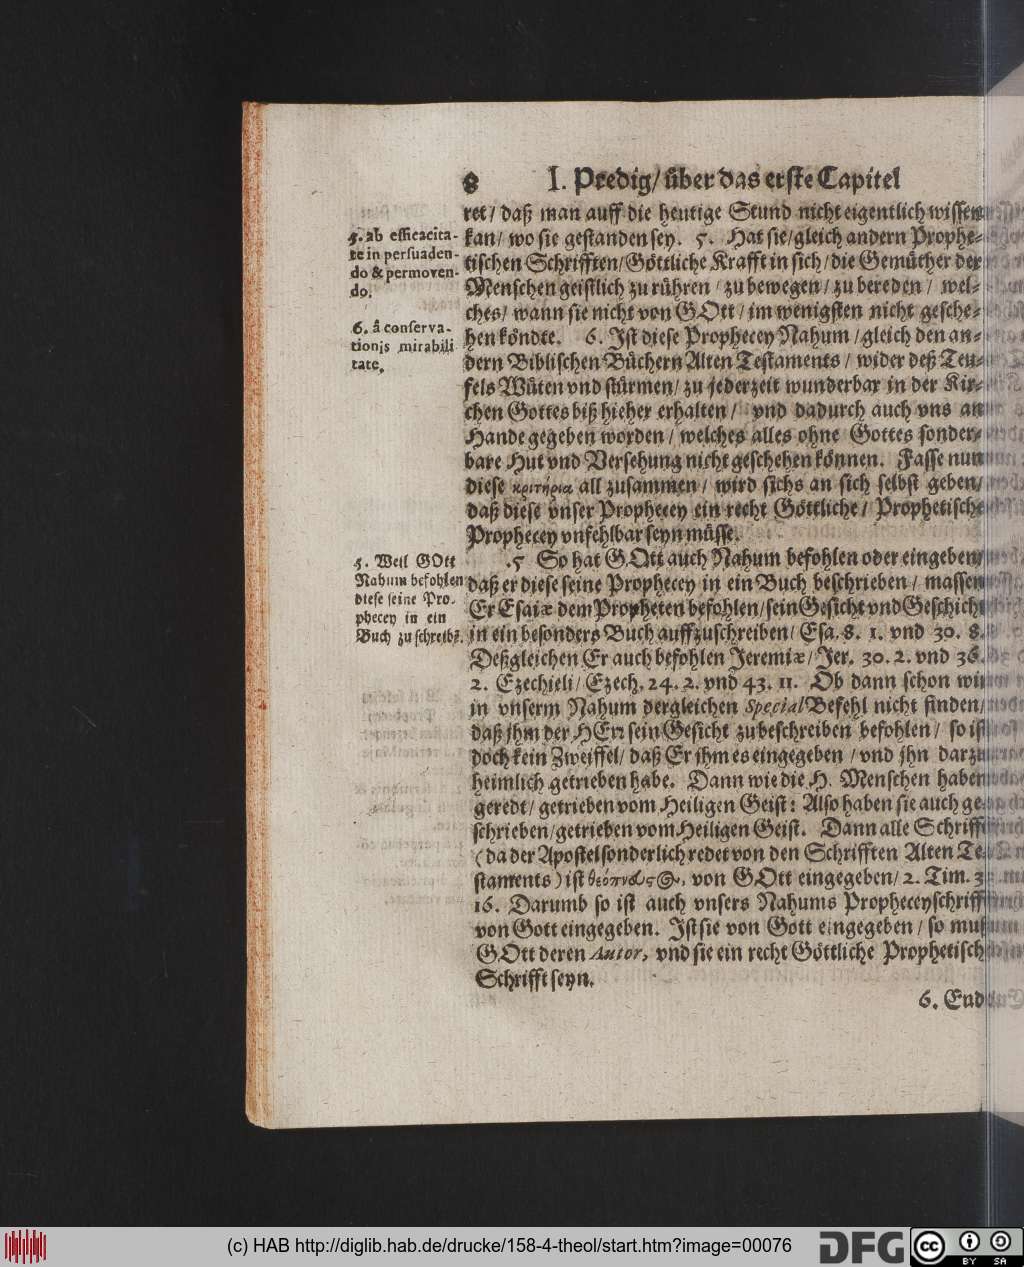 8 I. Predig/ über das erste Capitel
ret/ daß man auff die heutige Stund nicht eigentlich wissen
kan/ wo sie gestanden sey. 5. Hat sie/ gleich andern Prophe-
tischen Schrifften/ Göttliche Krafft in sich/ die Gemüther der
Menschen geistlich zu rühren/ zu bewegen/ zu bereden/ wel-
ches/ wann sie nicht von GOtt/ im wenigsten nicht gesche-
hen köndte. 6. Ist diese Prophecey Nahum/ gleich den an-
dern Biblischen Büchern Alten Testaments/ wider deß Teu-
fels Wüten vnd stürmen/ zu jederzeit wunderbar in der Kir-
chen Gottes biß hieher erhalten/ vnd dadurch auch vns an
Hande gegeben worden/ welches alles ohne Gottes sonder-
bare Hut vnd Versehung nicht geschehen können. Fasse nun
diese κριτήρια all zusammen/ wird sichs an sich selbst geben/
daß diese vnser Prophecey ein recht Göttliche/ Prophetische
Prophecey vnfehlbar seyn müsse.
.5 So hat GOtt auch Nahum befohlen oder eingeben/
daß er diese seine Prophecey in ein Buch beschrieben/ massen
Er Esaiæ dem Propheten befohlen/ sein Gesicht vnd Geschicht
in ein besonders Buch auffzuschreiben/ Esa. 8. 1. vnd 30. 8.
Deßgleichen Er auch befohlen Jeremiæ/ Jer. 30. 2. vnd 36.
2. Ezechieli/ Ezech. 24. 2. vnd 43. 11. Ob dann schon wir
in vnserm Nahum dergleichen Special Befehl nicht finden/
daß jhm der HErr sein Gesicht zubeschreiben befohlen/ so ist
doch kein Zweiffel/ daß Er jhm es eingegeben/ vnd jhn darzu
heimlich getrieben habe. Dann wie die H. Menschen haben
geredt/ getrieben vom Heiligen Geist: Also haben sie auch ge-
schrieben/ getrieben vom Heiligen Geist. Dann alle Schrifft
(da der Apostel sonderlich redet von den Schrifften Alten Te-
staments) ist θεόπνευστος, von GOtt eingegeben/ 2. Tim. 3.
16. Darumb so ist auch vnsers Nahums Propheceyschrifft
von Gott eingegeben. Ist sie von Gott eingegeben/ so muß
GOtt deren Autor, vnd sie ein recht Göttliche Prophetisch
Schrifft seyn.
6. End
5. ab efficacita-
te in persuaden-
do & permoven-
do.
6. â conserva-
tionis mirabili
tate.
5. Weil GOtt
Nahum befohlen
diese seine Pro-
phecey in ein
Buch zu schreibẽ.
(c) HAB http://diglib.hab.de/drucke/158-4-theol/start.htm?image=00076
DFG
cc BY SA